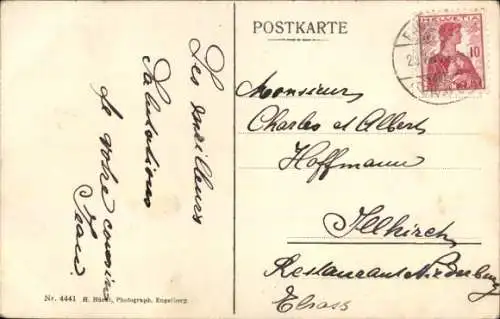 POSTKARTE
HELVETIA
10
Les meilleurs
Salutations
de votre cousin
Jean.
Monsieurs
Charles et Albert
Hoffmann
Illkirch
Restaurant Niederburg
Elsass
Nr. 4441 H. Photograph, Engelberg